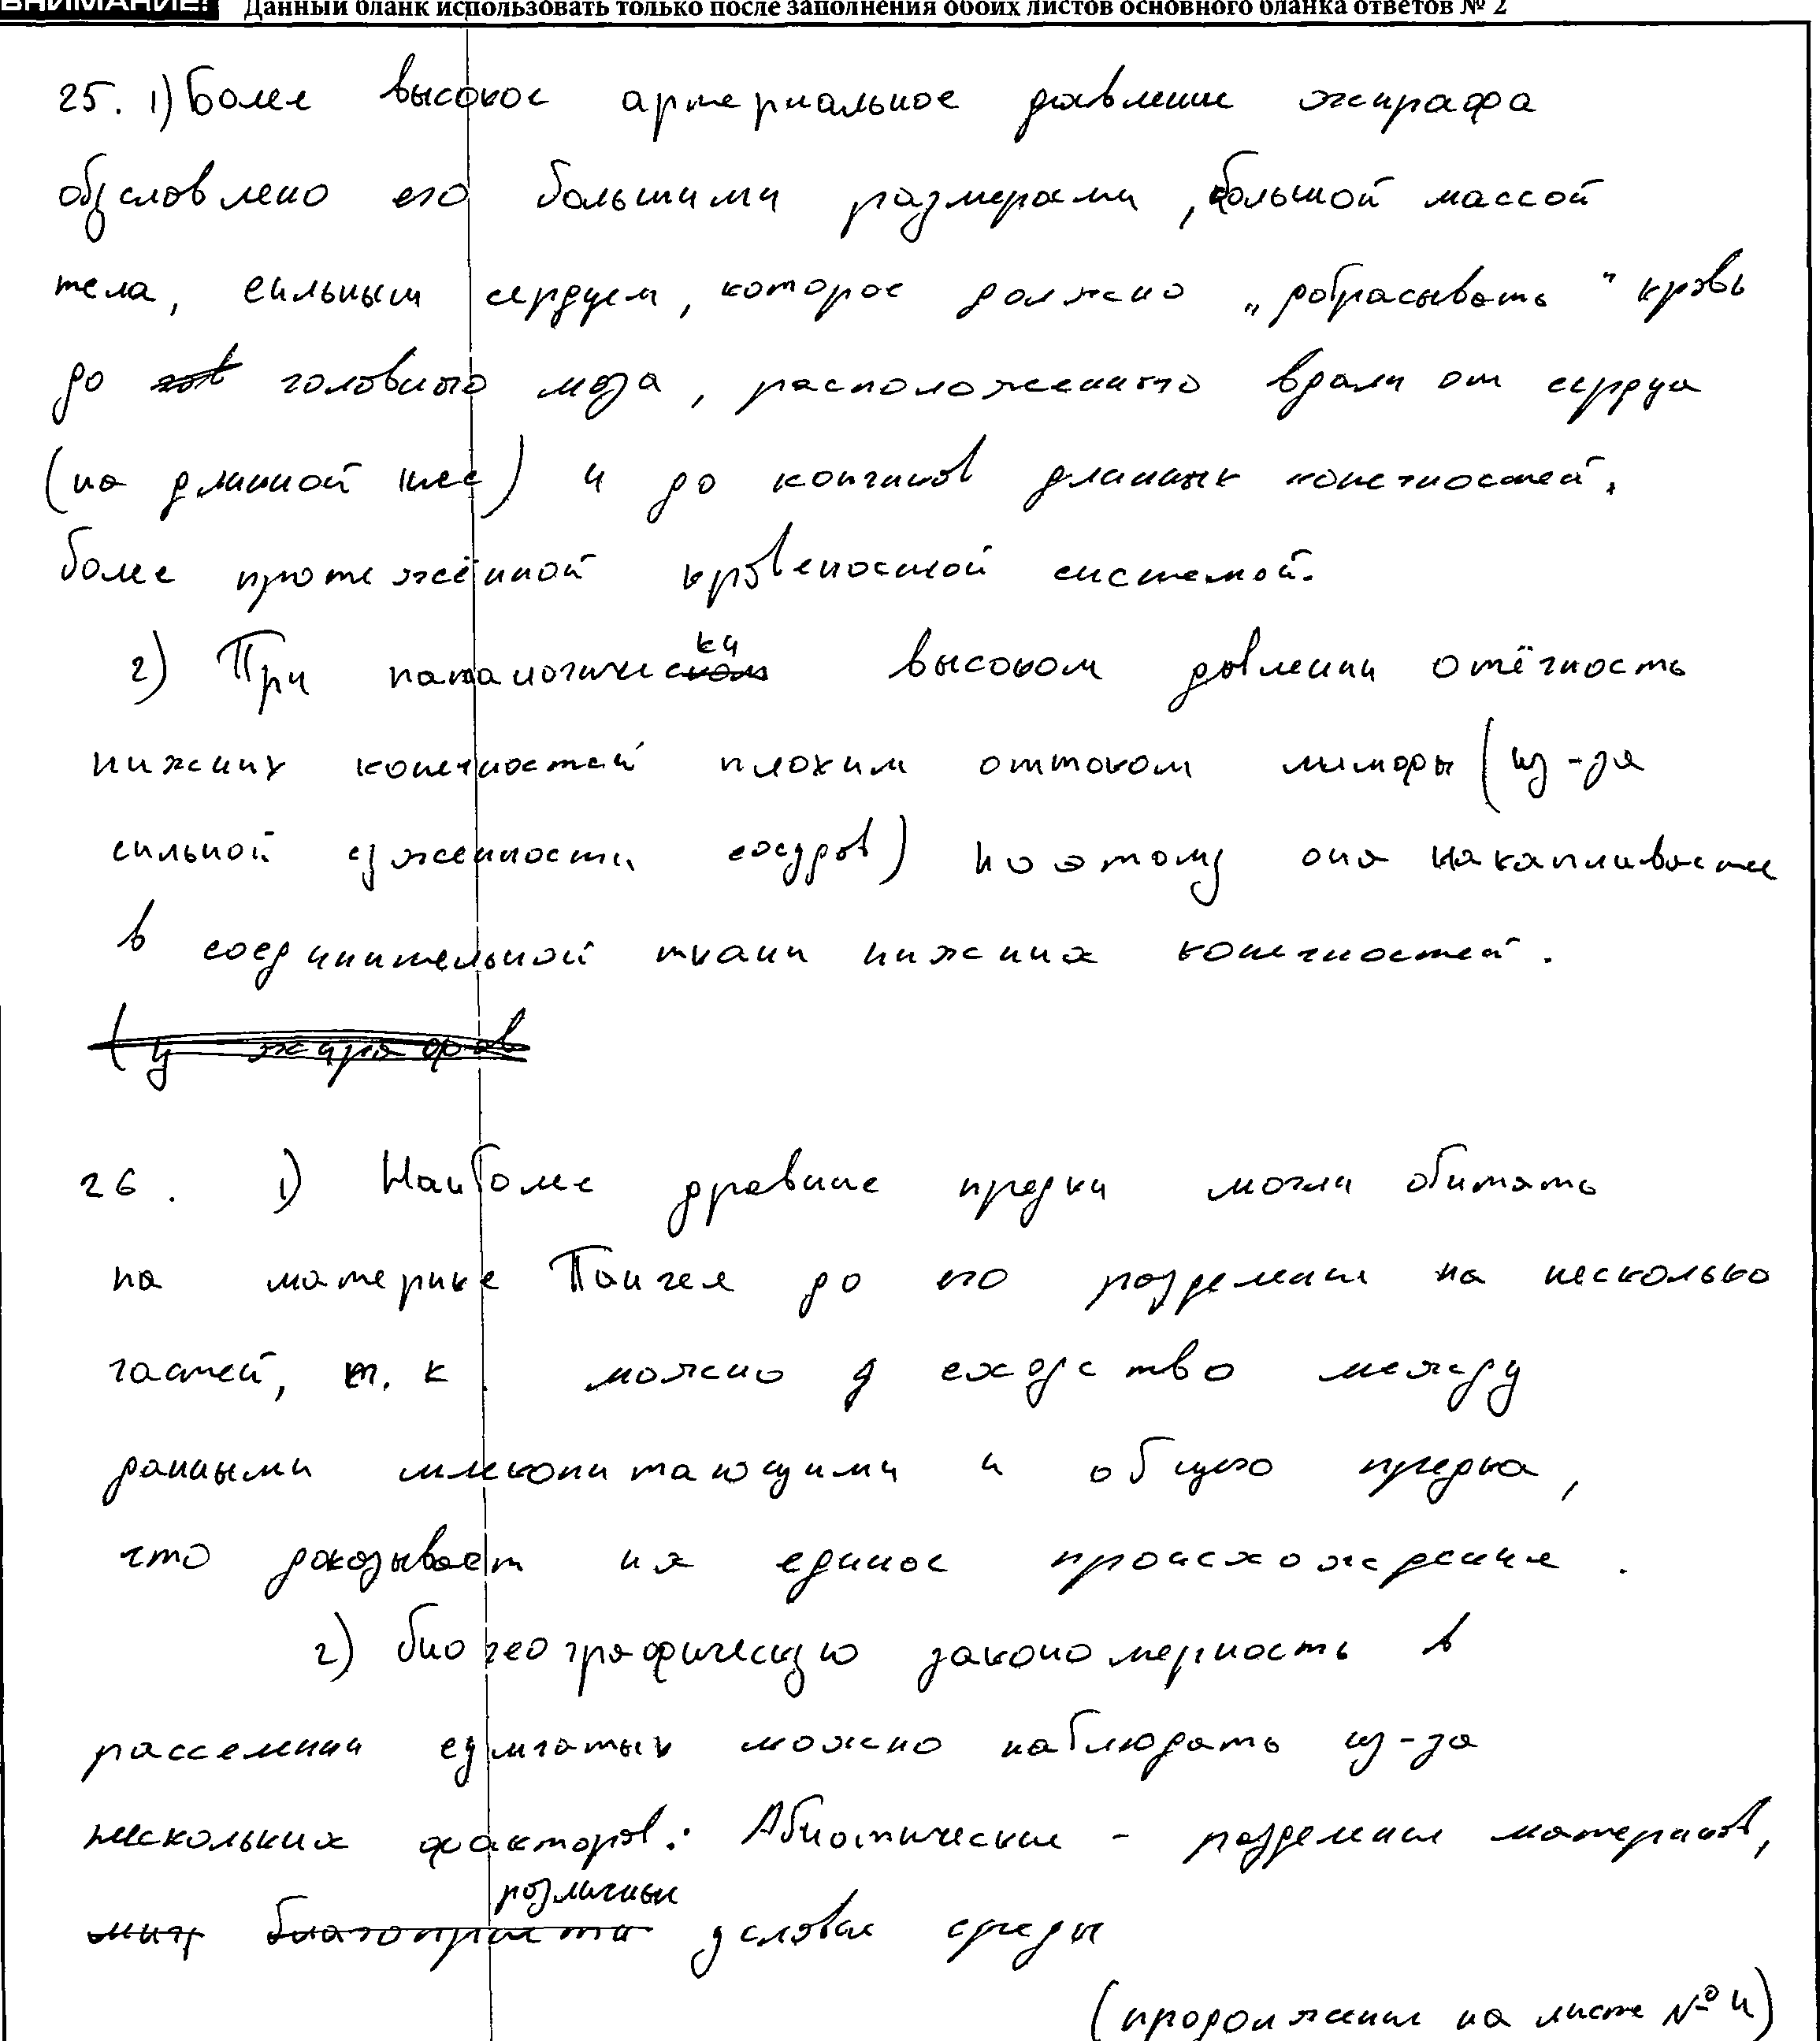 ВНИМАНИЕ! Данный бланк использовать только после заполнения обоих листов основного бланка ответов № 2
25. 1) Более высокое артериальное давление жирафа
обусловлено его большими размерами, большой массой
тела, сильным сердцем, которое должно „добрасывать" кровь
до головного мозга, расположенного вдали от сердца
(на длинной шее) и до кончиков длинных конечностей,
более протяжённой кровеносной системой.
2) При паталогически высоком давлении отёчность
нижних конечностей плохим оттоком лимфы (из-за
сильной суженности сосудов) поэтому она накапливается
в соединительной ткани нижних конечностей.
(у жирафов
26. 1) Наиболее древние предки могли обитать
на материке Пангея до его разделения на несколько
частей, т. к. можно у сходство между
данными млекопитающими и общего предка,
что доказывает их единое происхождение.
2) биогеографическую закономерность в
расселении можно наблюдать из-за
нескольких факторов: Абиотические - разделение материков,
различные условия среды
(продолжение на листе № 4)